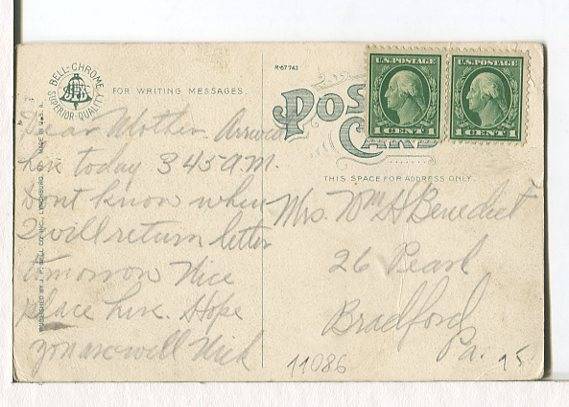 BELL-CHROME
SUPERIOR-QUALITY
FOR WRITING MESSAGES.
R-67742
POST CARD
U.S. POSTAGE
1 CENT 1
U.S. POSTAGE
1 CENT 1
THIS SPACE FOR ADDRESS ONLY.
Dear Mother. Arrived
here today 3 45 A.M.
Dont know when
I will return letter
tomorrow Nice
place here. Hope
you are well Nick
Mrs. Wm H Benedict
26 Pearl
Bradford
Pa.
11086
PUBLISHED BY J. P. BELL CO. INC., LYNCHBURG, VA. MADE IN U. S. A.